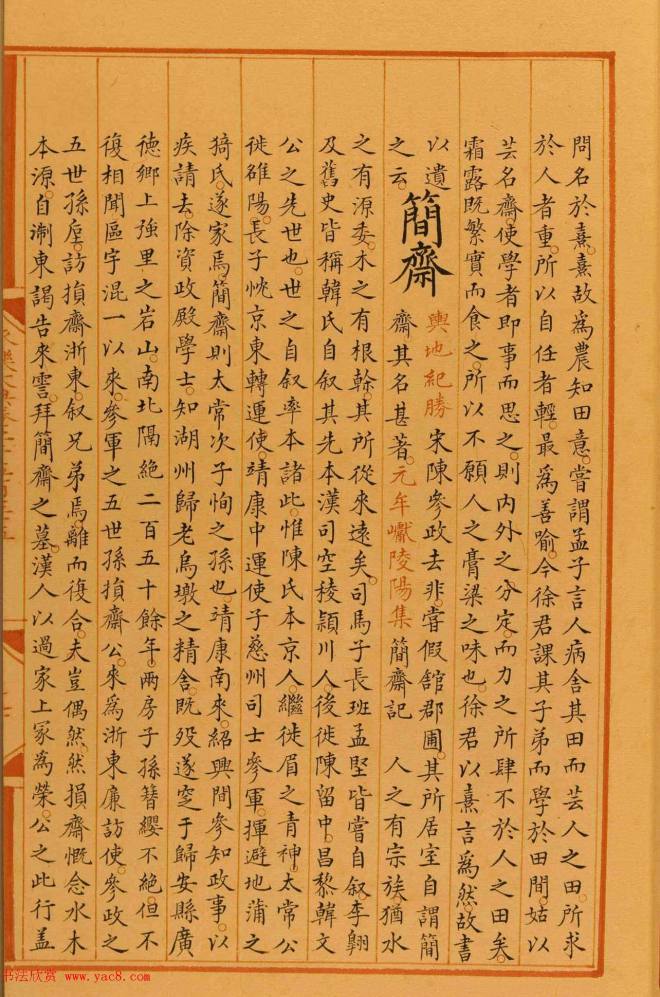 問名於熹熹故爲農知田意嘗謂孟子言人病舍其田而芸人之田所求
於人者重所以自任者輕最爲善喻今徐君課其子弟而學於田間姑以
芸名齋使學者即事而思之則内外之分定而力之所肆不於人之田矣
霜露既繁實而食之所以不願人之膏梁之味也徐君以熹言爲然故書
以遺
之云
簡齋
輿地紀勝 宋陳參政去非嘗假舘郡圃其所居室自謂簡
齋其名甚著元牟巘陵陽集簡齋記 人之有宗族猶水
之有源委木之有根榦其所從來遠矣司馬子長班孟堅皆嘗自叙李翺
及舊史皆稱韓氏自叙其先本漢司空稜頴川人後徙陳留中昌黎韓文
公之先世也世之自叙率本諸此惟陳氏本京人繼徙眉之青神太常公
徙雒陽長子忱京東轉運使靖康中運使子慈州司士參軍揮避地蒲之
猗氏遂家焉簡齋則太常次子恂之孫也靖康南來紹興間參知政事以
疾請去除資政殿學士知湖州歸老烏墩之精舍既殁遂窆于歸安縣廣
徳鄉上強里之岩山南北隔絶二百五十餘年兩房子孫簪纓不絶但不
復相聞區宇混一以來參軍之五世孫損齋公來爲浙東廉訪使參政之
五世孫庢訪損齋浙東叙兄弟焉離而復合夫豈偶然然損齋慨念水木
本源自淛東謁告來霅拜簡齋之墓漢人以過家上冢為榮公之此行盖
书法欣赏 www.yac8.com